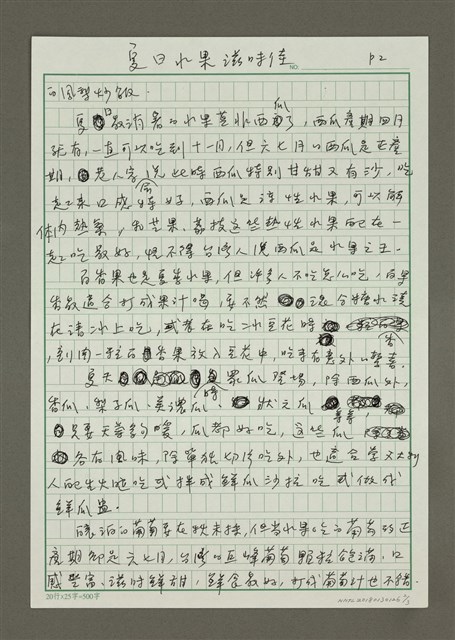 夏日水果滋味佳 P2
的鳳梨炒飯。
夏日最消暑的水果莫非西瓜了，西瓜產期四月
就有，一直可以吃到十一月，但六七月的西瓜是正產
期，老人家說此時西瓜特別甘甜又有沙，吃
起來口感會特好，西瓜是涼性水果，可以解
體內熱氣，和芒果、荔枝這些熱性水果配在一
起吃最好，怪不得台灣人說西瓜是水果之王。
百香果也是夏季水果，但許多人不吃怎么吃，百
香最適合打成果汁喝，要不然混合糖水淋
在清冰上吃，或者在吃冰豆花時
，剖開一粒百香果放入豆花中，吃來有意外的驚喜。
夏天眾瓜登場，除西瓜外，
香瓜、梨子瓜、美濃瓜、狀元瓜等等，
只要天暖，瓜都好吃，這些瓜
各有風味，除單獨切片吃外，也適合學義大利
人配生火腿吃或拌成鮮瓜沙拉吃或做成
鮮瓜盅。
釀酒的葡萄要在秋末採，但當水果吃的葡萄的正
產期卻是六七月，台灣的巨峰葡萄顆粒飽滿，口
感豐富、滋味鮮甜，鮮食最好，打成葡萄汁也不錯。
20行×25字=500字